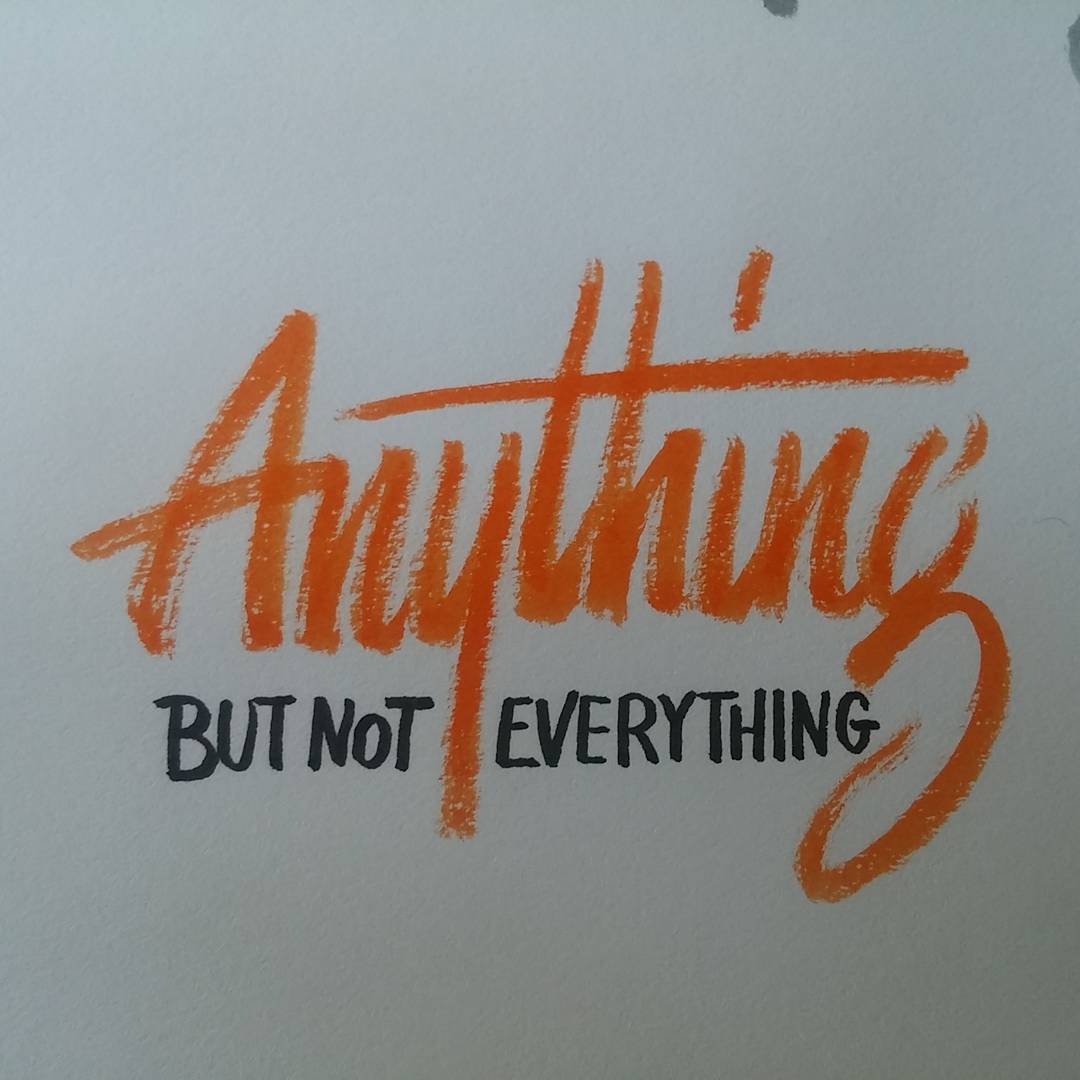 Anything
BUT NOT EVERYTHING